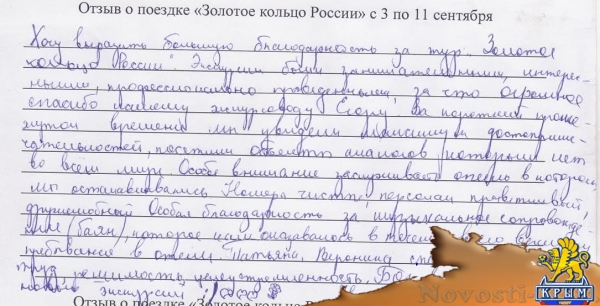 Отзыв о поездке «Золотое кольцо России» с 3 по 11 сентября
Хочу выразить большую благодарность за тур "Золотое
кольцо России". Экскурсии были занимательными, интерес-
ными, профессионально проведенными, за что огромное
спасибо нашему экскурсоводу Егору! За короткий проме-
жуток времени мы увидели максимум достоприме-
чательностей, посетили объекты аналогов которым нет
во всём мире. Особое внимание заслуживает отель в котором
мы останавливались. Номера чистые, персонал приветливый,
дружелюбный. Особая благодарность за музыкальное сопровожде-
ние (баян), которое нам оказывалось в течении всего
пребывания в отели. Татьяна, Вероника
труд решимость, целеустремленность,
экскурсии
Отзыв о поездке «Золотое кольцо
Novosti-
КРЫМ